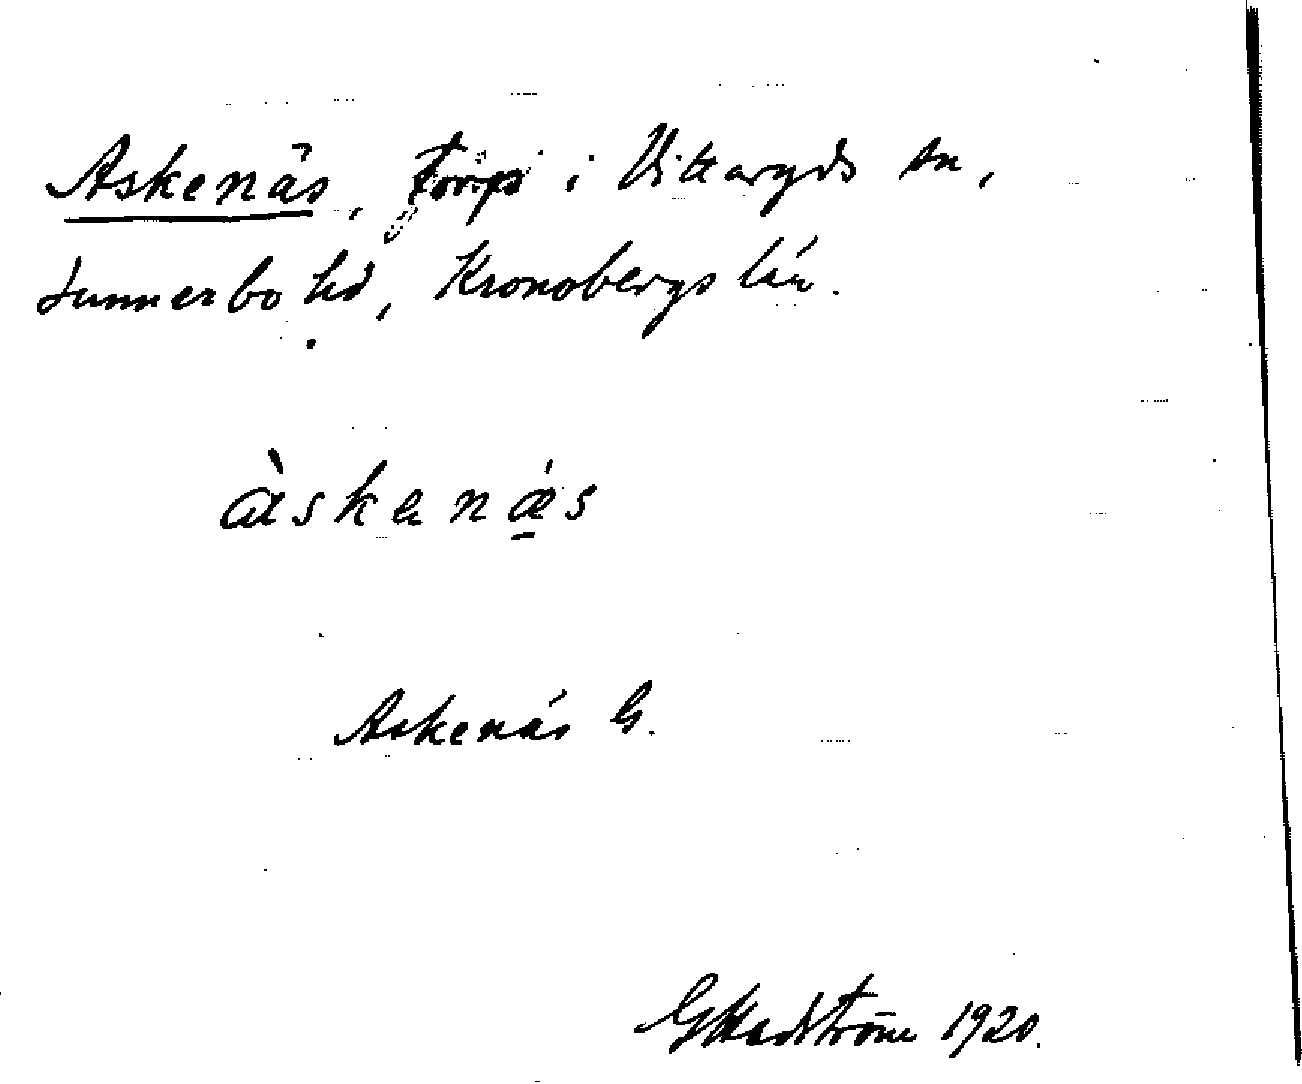 Askenäs, torp i Vittaryds sn,
Sunnerbo hd, Kronobergs län.
àskenǽs
Askenäs G.
1920.